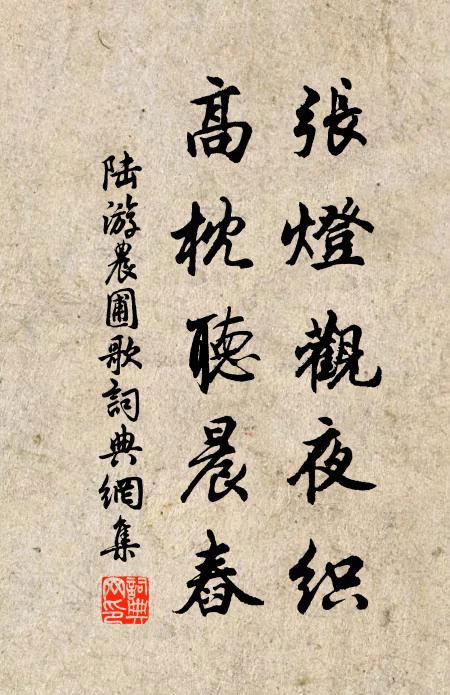 張燈觀夜织
高枕聽晨舂
陸游農圃歌詞典網集
詞典网印